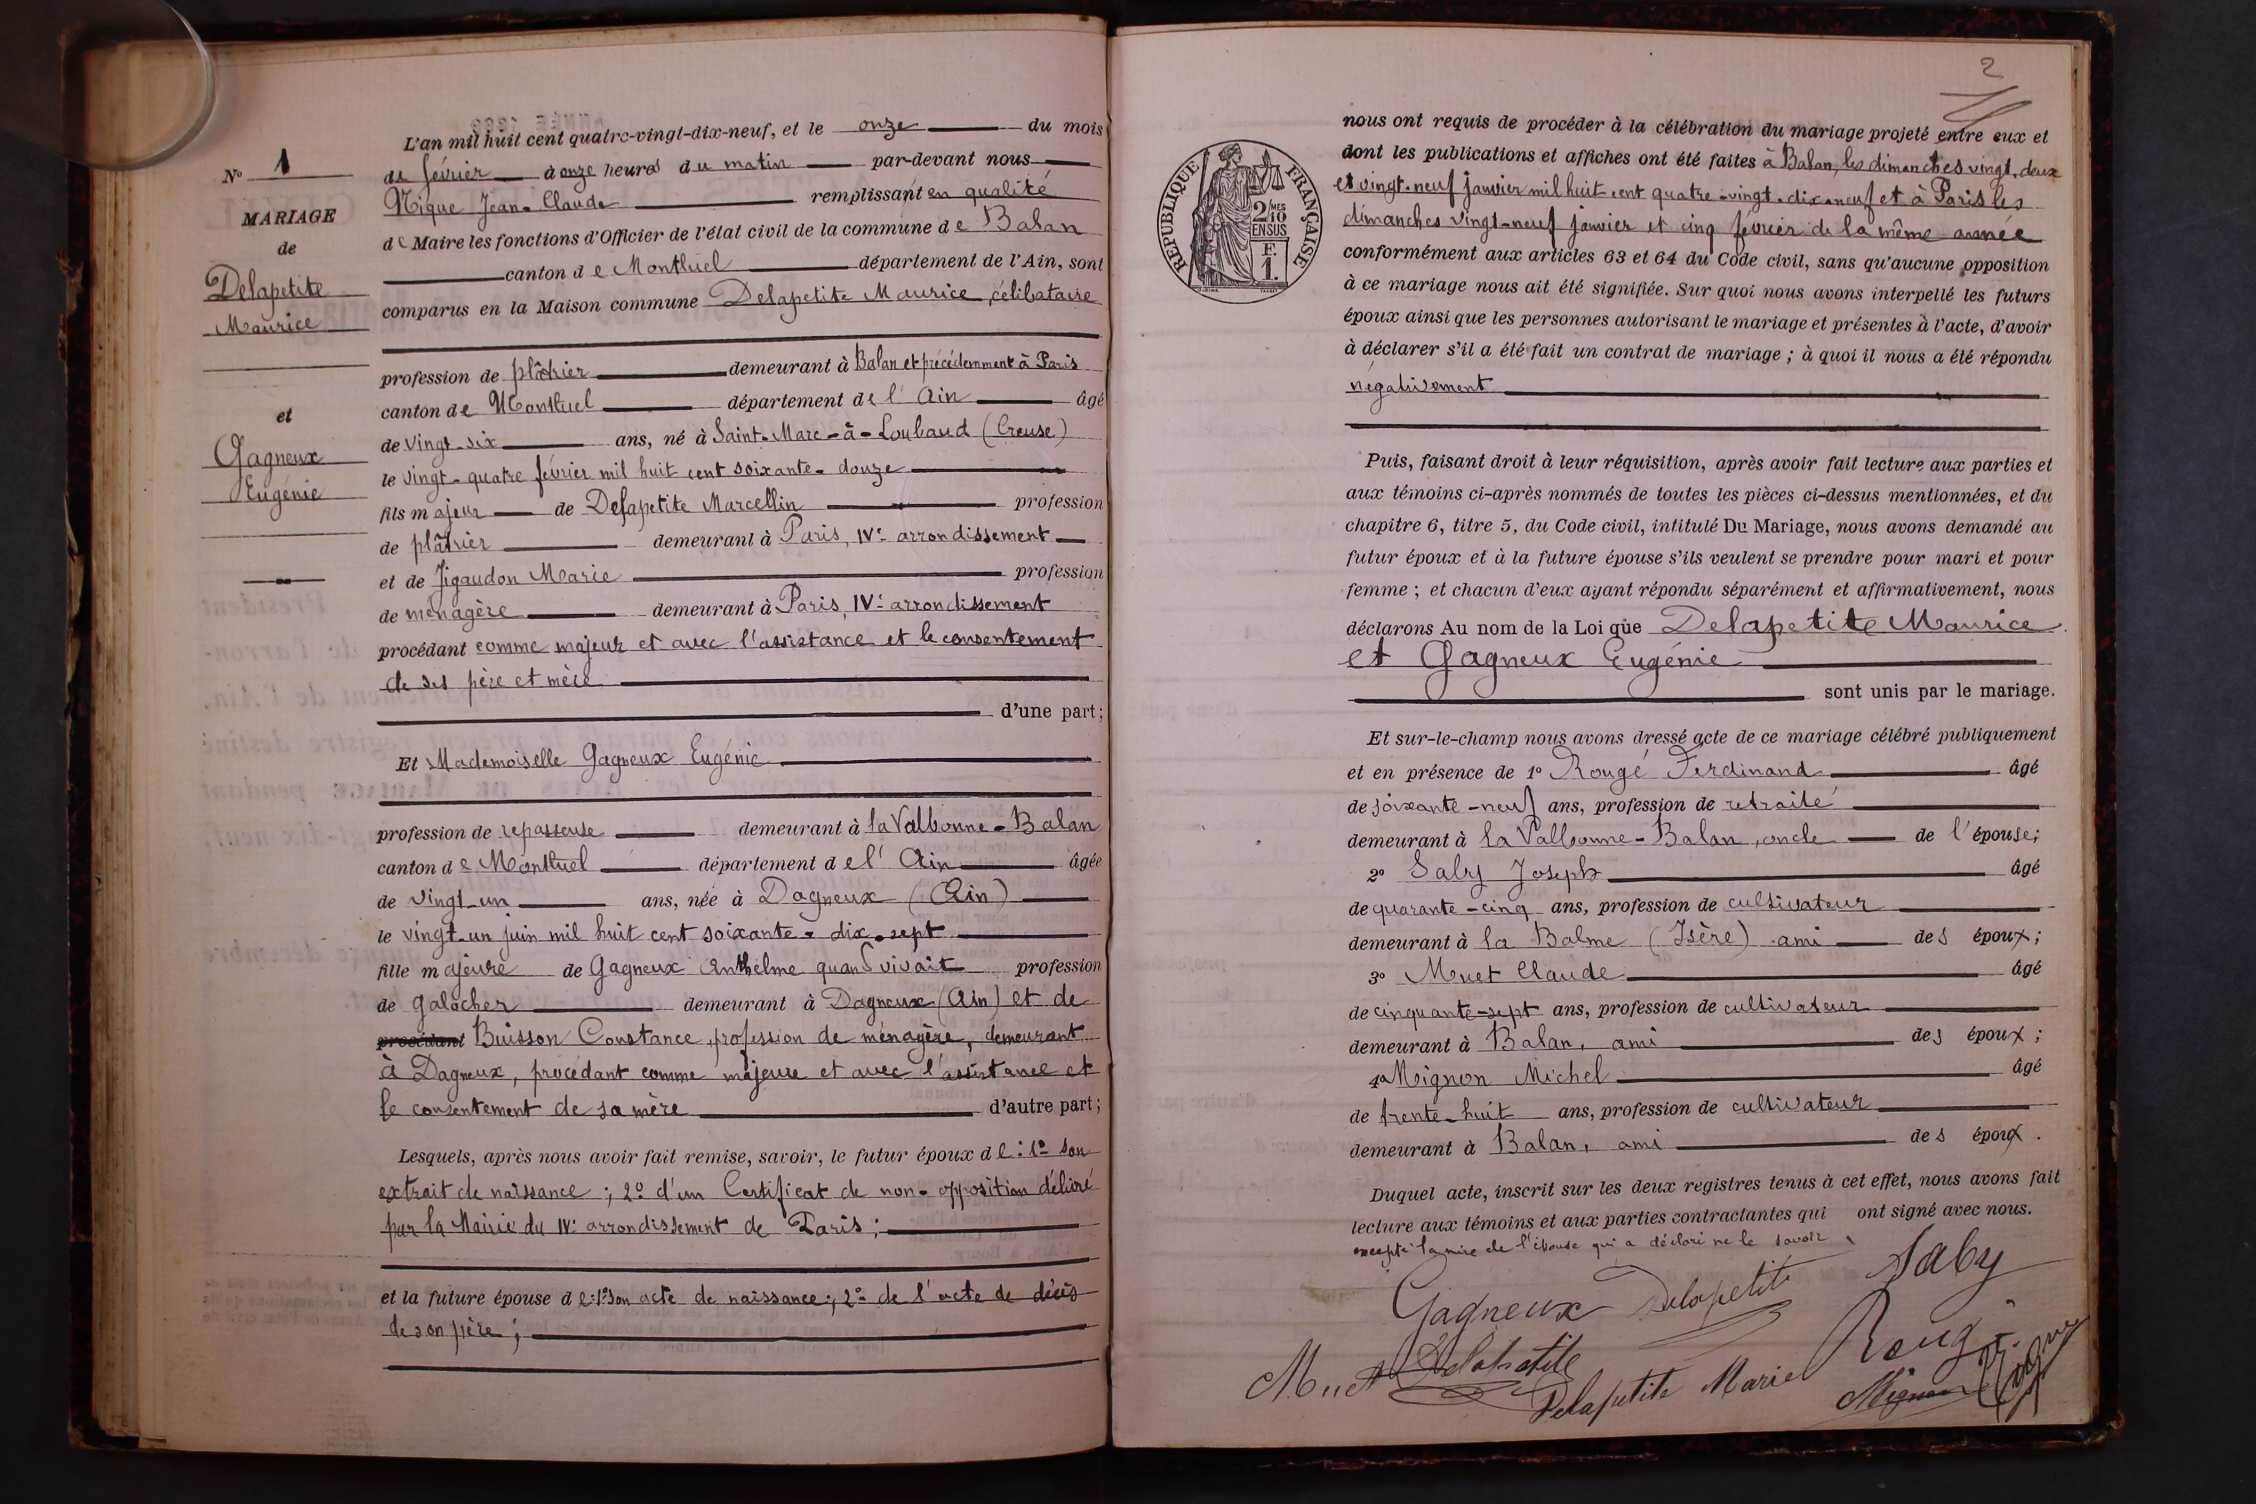 N° 1
MARIAGE
de
Delapetite
Maurice
et
Gagneux
Eugénie
L'an mil huit cent quatre-vingt-dix-neuf, et le onze du mois
de février à onze heures du matin par-devant nous
Nique Jean-Claude remplissant en qualité
de Maire les fonctions d'Officier de l'état civil de la commune de Balan
canton de Montluel département de l'Ain, sont
comparus en la Maison commune Delapetite Maurice, célibataire
profession de plâtrier demeurant à Balan et précédemment à Paris
canton de Montluel département de l'Ain âgé
de vingt-six ans, né à Saint-Marc-à-Loubaud (Creuse)
le vingt-quatre février mil huit cent soixante-douze
fils majeur de Delapetite Marcellin profession
de plâtrier demeurant à Paris, IVe arrondissement
et de Jigaudon Marie profession
de ménagère demeurant à Paris, IVe arrondissement
procédant comme majeur et avec l'assistance et le consentement
de ses père et mère
d'une part;
Et Mademoiselle Gagneux Eugénie
profession de repasseuse demeurant à la Valbonne-Balan
canton de Montluel département de l'Ain âgée
de vingt-un ans, née à Dagneux (Ain)
le vingt-un juin mil huit cent soixante-dix-sept
fille majeure de Gagneux Anthelme quand vivait profession
de galocher demeurant à Dagneux (Ain) et de
procédant Buisson Constance, profession de ménagère, demeurant
à Dagneux, procédant comme majeure et avec l'assistance et
le consentement de sa mère d'autre part;
Lesquels, après nous avoir fait remise, savoir, le futur époux de : 1° son
extrait de naissance ; 2° d'un Certificat de non-opposition délivré
par la Mairie du IVe arrondissement de Paris ;
et la future épouse de : 1° son acte de naissance ; 2° de l'acte de décès
de son père ;
2
RÉPUBLIQUE FRANÇAISE
2/10 MES
EN SUS
F.
1.
nous ont requis de procéder à la célébration du mariage projeté entre eux et
dont les publications et affiches ont été faites à Balan, les dimanches vingt-deux
et vingt-neuf janvier mil huit cent quatre-vingt-dix-neuf et à Paris les
dimanches vingt-neuf janvier et cinq février de la même année
conformément aux articles 63 et 64 du Code civil, sans qu'aucune opposition
à ce mariage nous ait été signifiée. Sur quoi nous avons interpellé les futurs
époux ainsi que les personnes autorisant le mariage et présentes à l'acte, d'avoir
à déclarer s'il a été fait un contrat de mariage ; à quoi il nous a été répondu
négativement
Puis, faisant droit à leur réquisition, après avoir fait lecture aux parties et
aux témoins ci-après nommés de toutes les pièces ci-dessus mentionnées, et du
chapitre 6, titre 5, du Code civil, intitulé Du Mariage, nous avons demandé au
futur époux et à la future épouse s'ils veulent se prendre pour mari et pour
femme ; et chacun d'eux ayant répondu séparément et affirmativement, nous
déclarons Au nom de la Loi que Delapetite Maurice
et Gagneux Eugénie
sont unis par le mariage.
Et sur-le-champ nous avons dressé acte de ce mariage célébré publiquement
et en présence de 1° Rougé Ferdinand âgé
de soixante-neuf ans, profession de retraité
demeurant à la Valbonne-Balan, oncle de l'épouse;
2° Saby Joseph âgé
de quarante-cinq ans, profession de cultivateur
demeurant à la Balme (Isère) ami des époux;
3° Muet Claude âgé
de cinquante-sept ans, profession de cultivateur
demeurant à Balan, ami des époux;
4° Mignon Michel âgé
de trente-huit ans, profession de cultivateur
demeurant à Balan, ami des époux.
Duquel acte, inscrit sur les deux registres tenus à cet effet, nous avons fait
lecture aux témoins et aux parties contractantes qui ont signé avec nous.
excepté la mère de l'épouse qui a déclaré ne le savoir
Gagneux Delapetite Saby
Muet Delapetite Rougé
Delapetite Marie Mignon